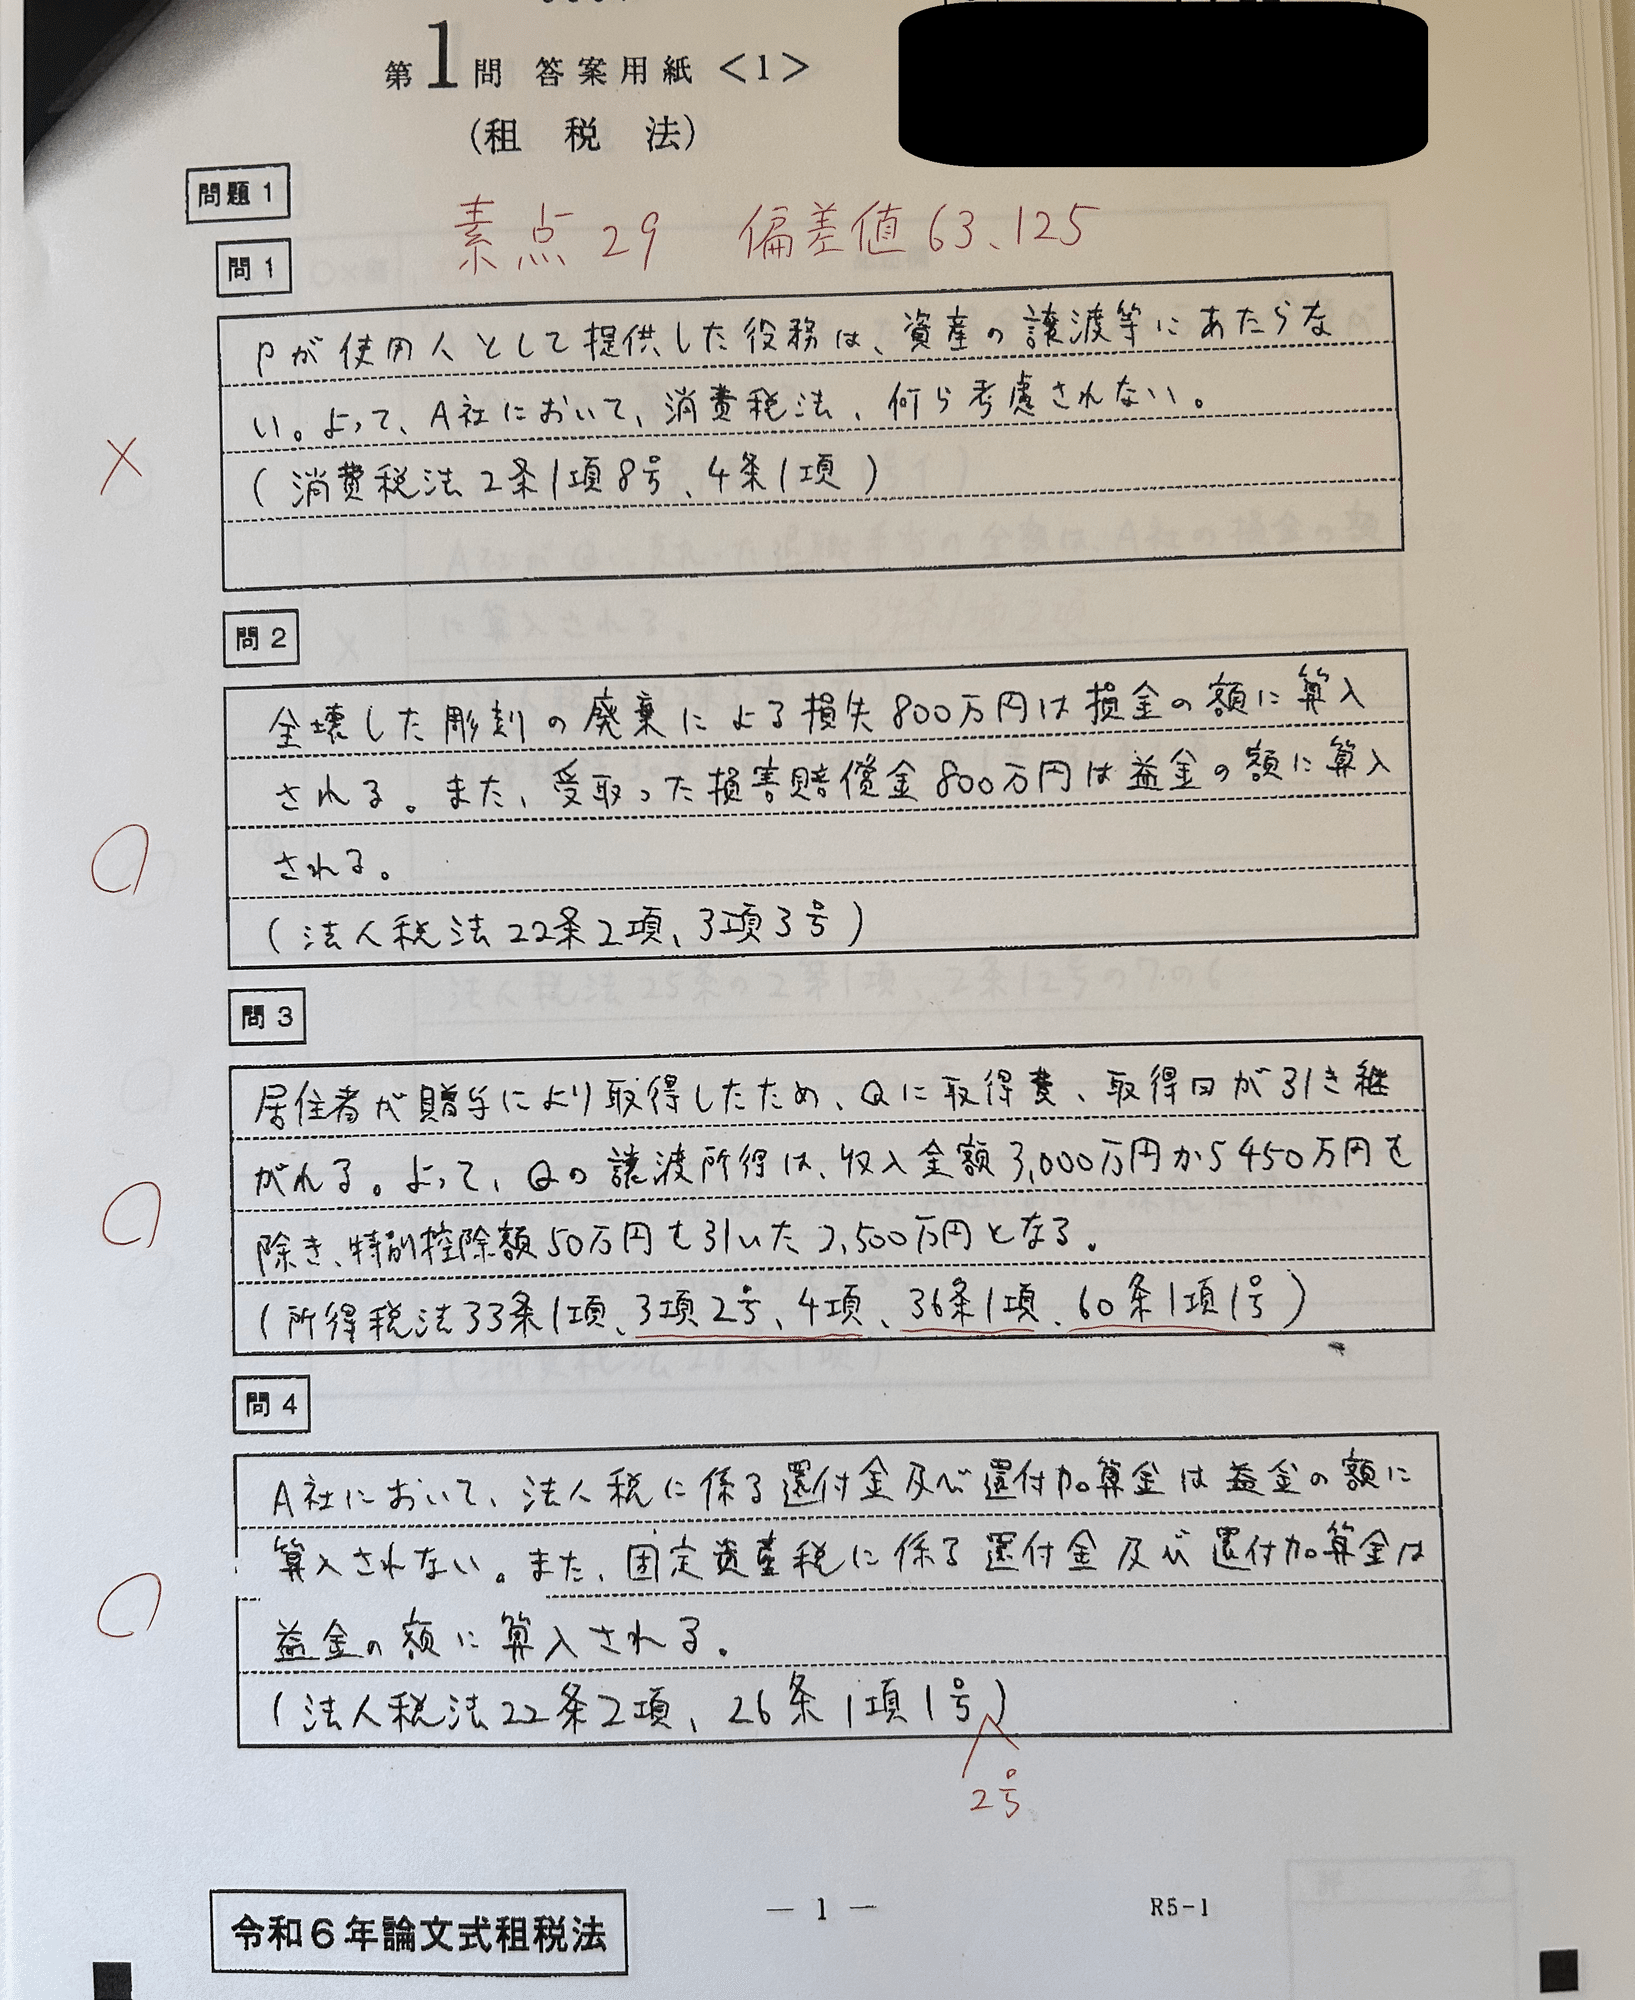 第1問 答案用紙 <1>
(租税法)
問題1
素点29 偏差値63.125
問1
Pが使用人として提供した役務は、資産の譲渡等にあたらな
い。よって、A社において、消費税法、何ら考慮されない。
×
(消費税法2条1項8号、4条1項)
問2
全壊した彫刻の廃棄による損失800万円は損金の額に算入
される。また、受取った損害賠償金800万円は益金の額に算入
される。
(法人税法22条2項、3項3号)
問3
居住者が贈与により取得したため、Qに取得費、取得日が引き継
がれる。よって、Qの譲渡所得は、収入金額3,000万円から450万円を
除き、特別控除額50万円を引いた2,500万円となる。
(所得税法33条1項、3項2号、4項、36条1項、60条1項1号)
問4
A社において、法人税に係る還付金及び還付加算金は益金の額に
算入されない。また、固定資産税に係る還付金及び還付加算金は
益金の額に算入される。
(法人税法22条2項、26条1項1号)
2号
令和6年論文式租税法
— 1 —
R5-1